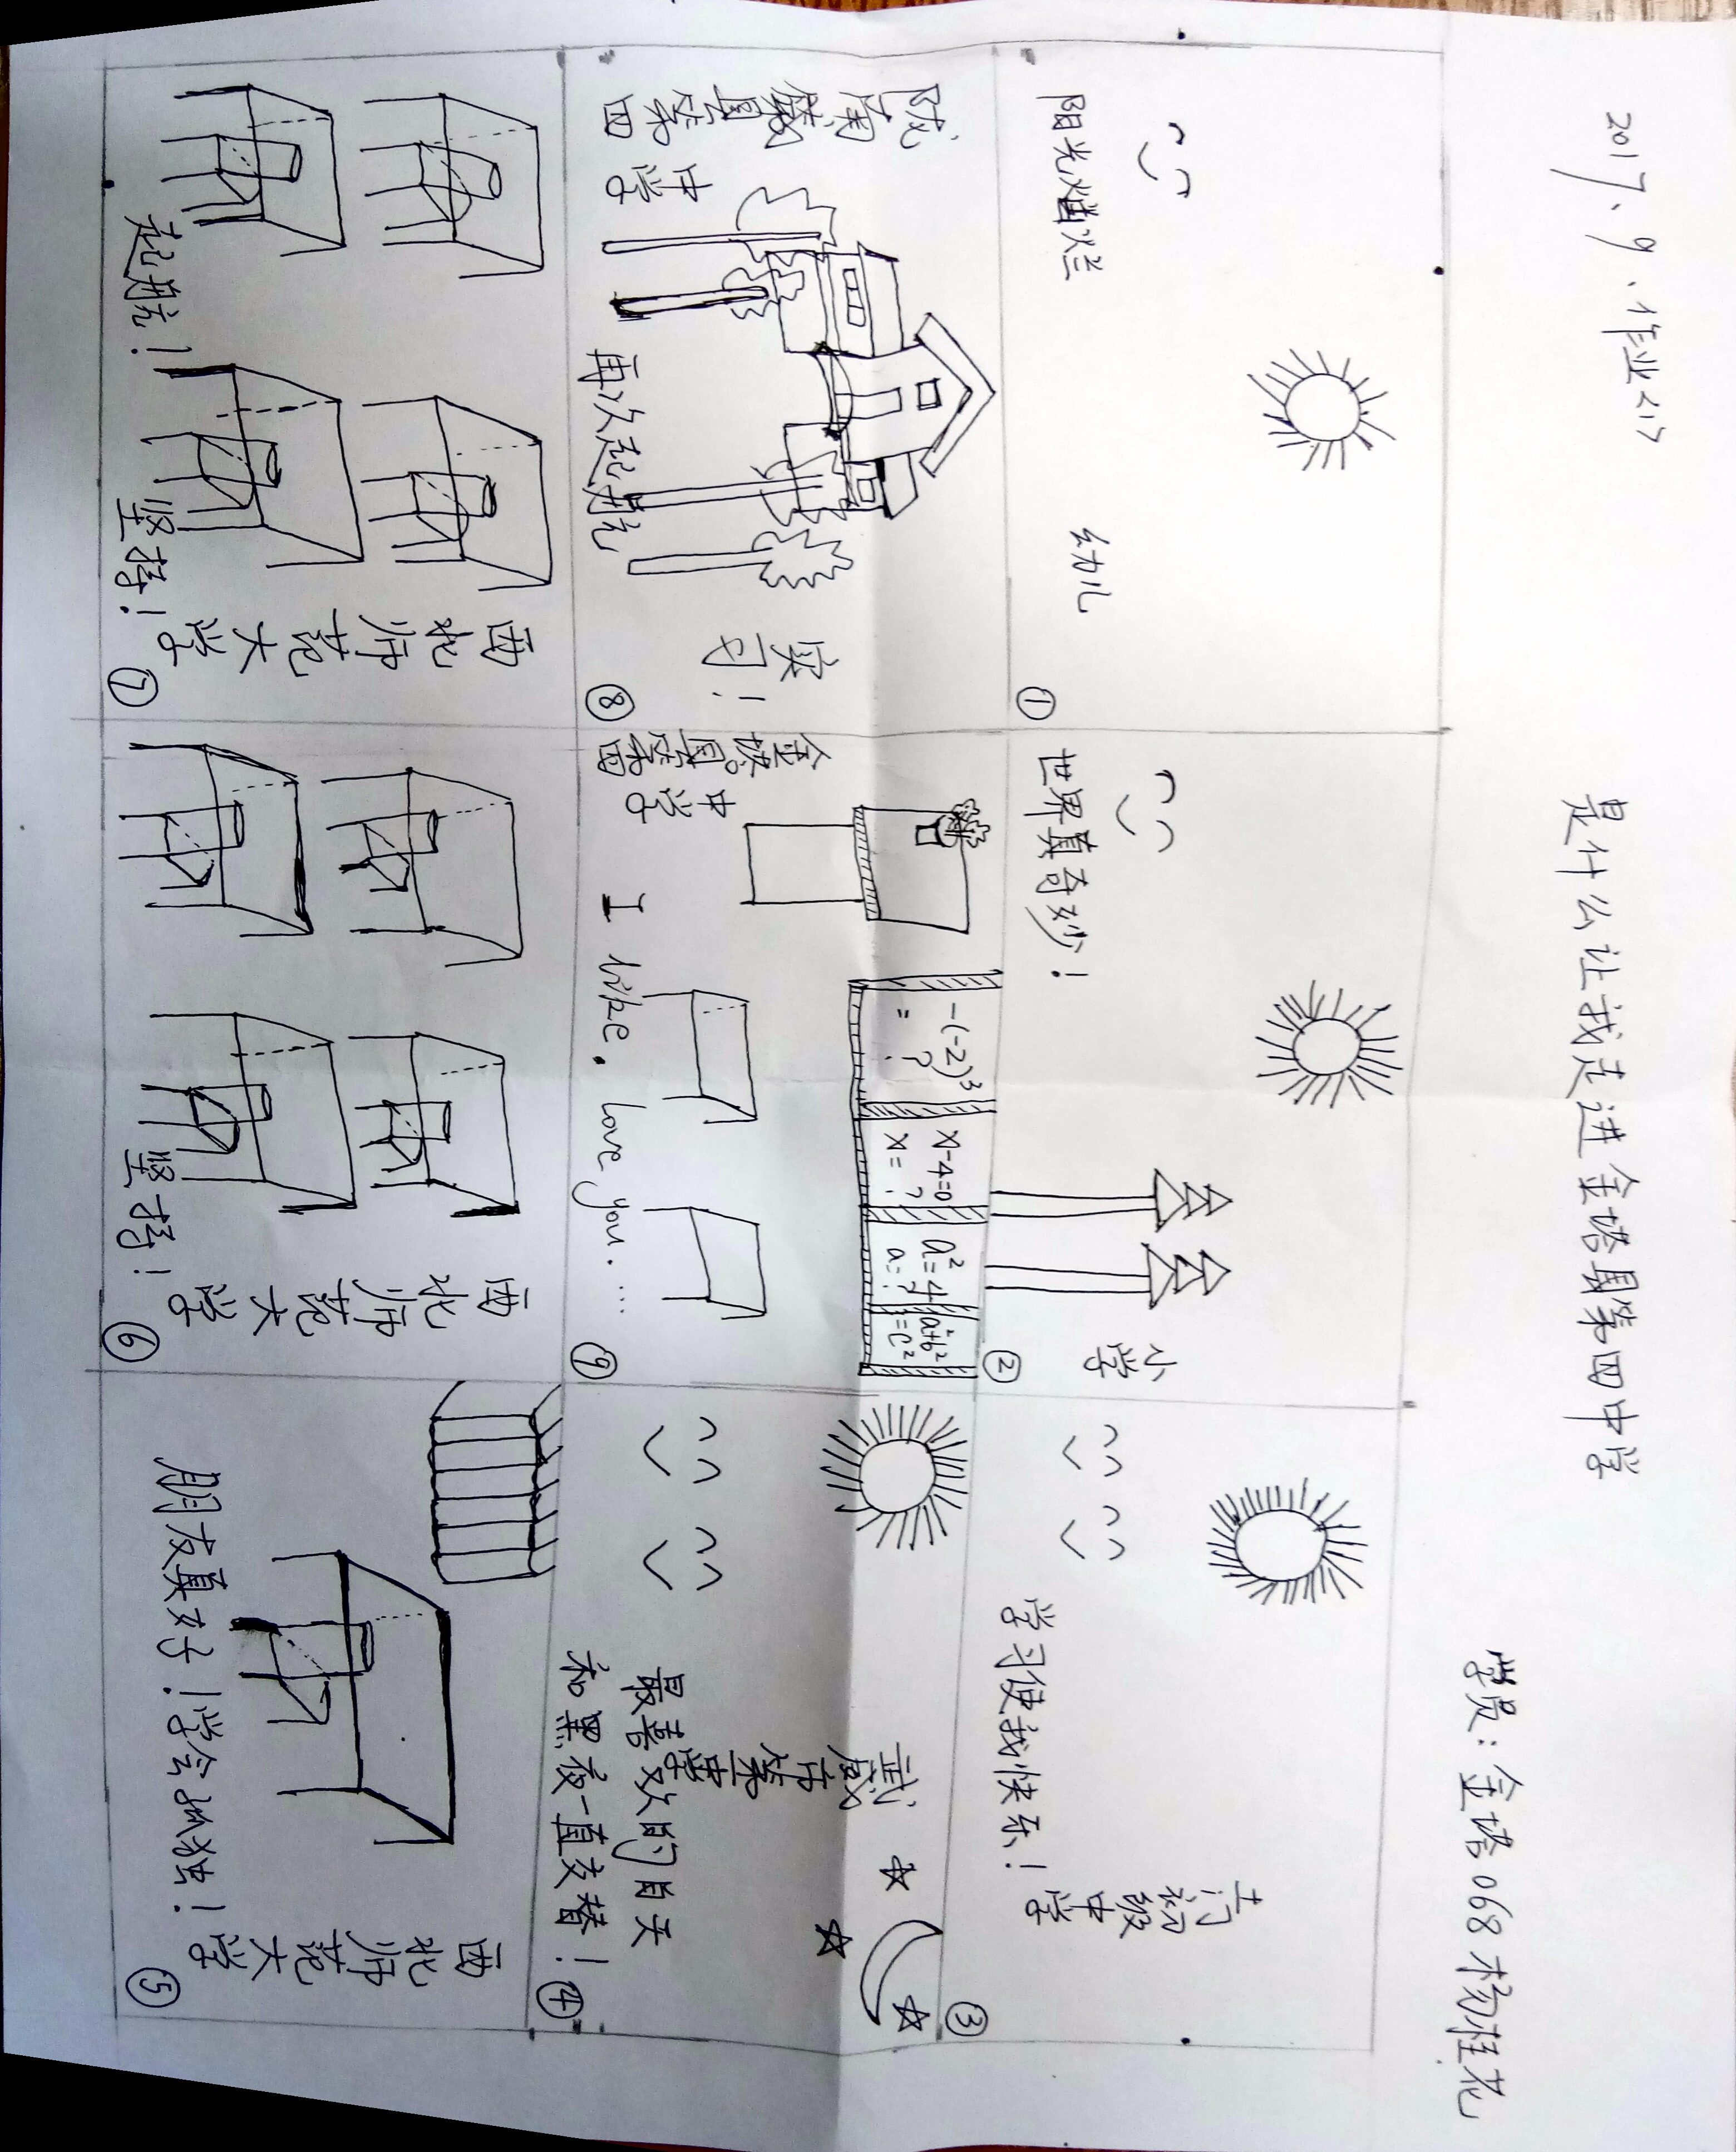 2017、9、作业<1>
是什么让我走进金塔县第四中学
学员：金塔068杨桂花
阳光灿烂
幼儿
①
世界真奇妙！
小学
②
学习使我快乐！
土门初级中学
③
陇南徽县第四
中学
再次起航
实习！
⑧
金塔县第四
中学
-(-2)³
=?
x-4=0
x=?
a²=4
a=?
a²+b²
=c²
I like. love you. ....
⑨
武威市第
最喜欢的白天
和黑夜一直交替！
④
起航！
坚持！
西北师范大学
⑦
坚持！
西北师范大学
⑥
朋友真好！学会孤独！
西北师范大学
⑤